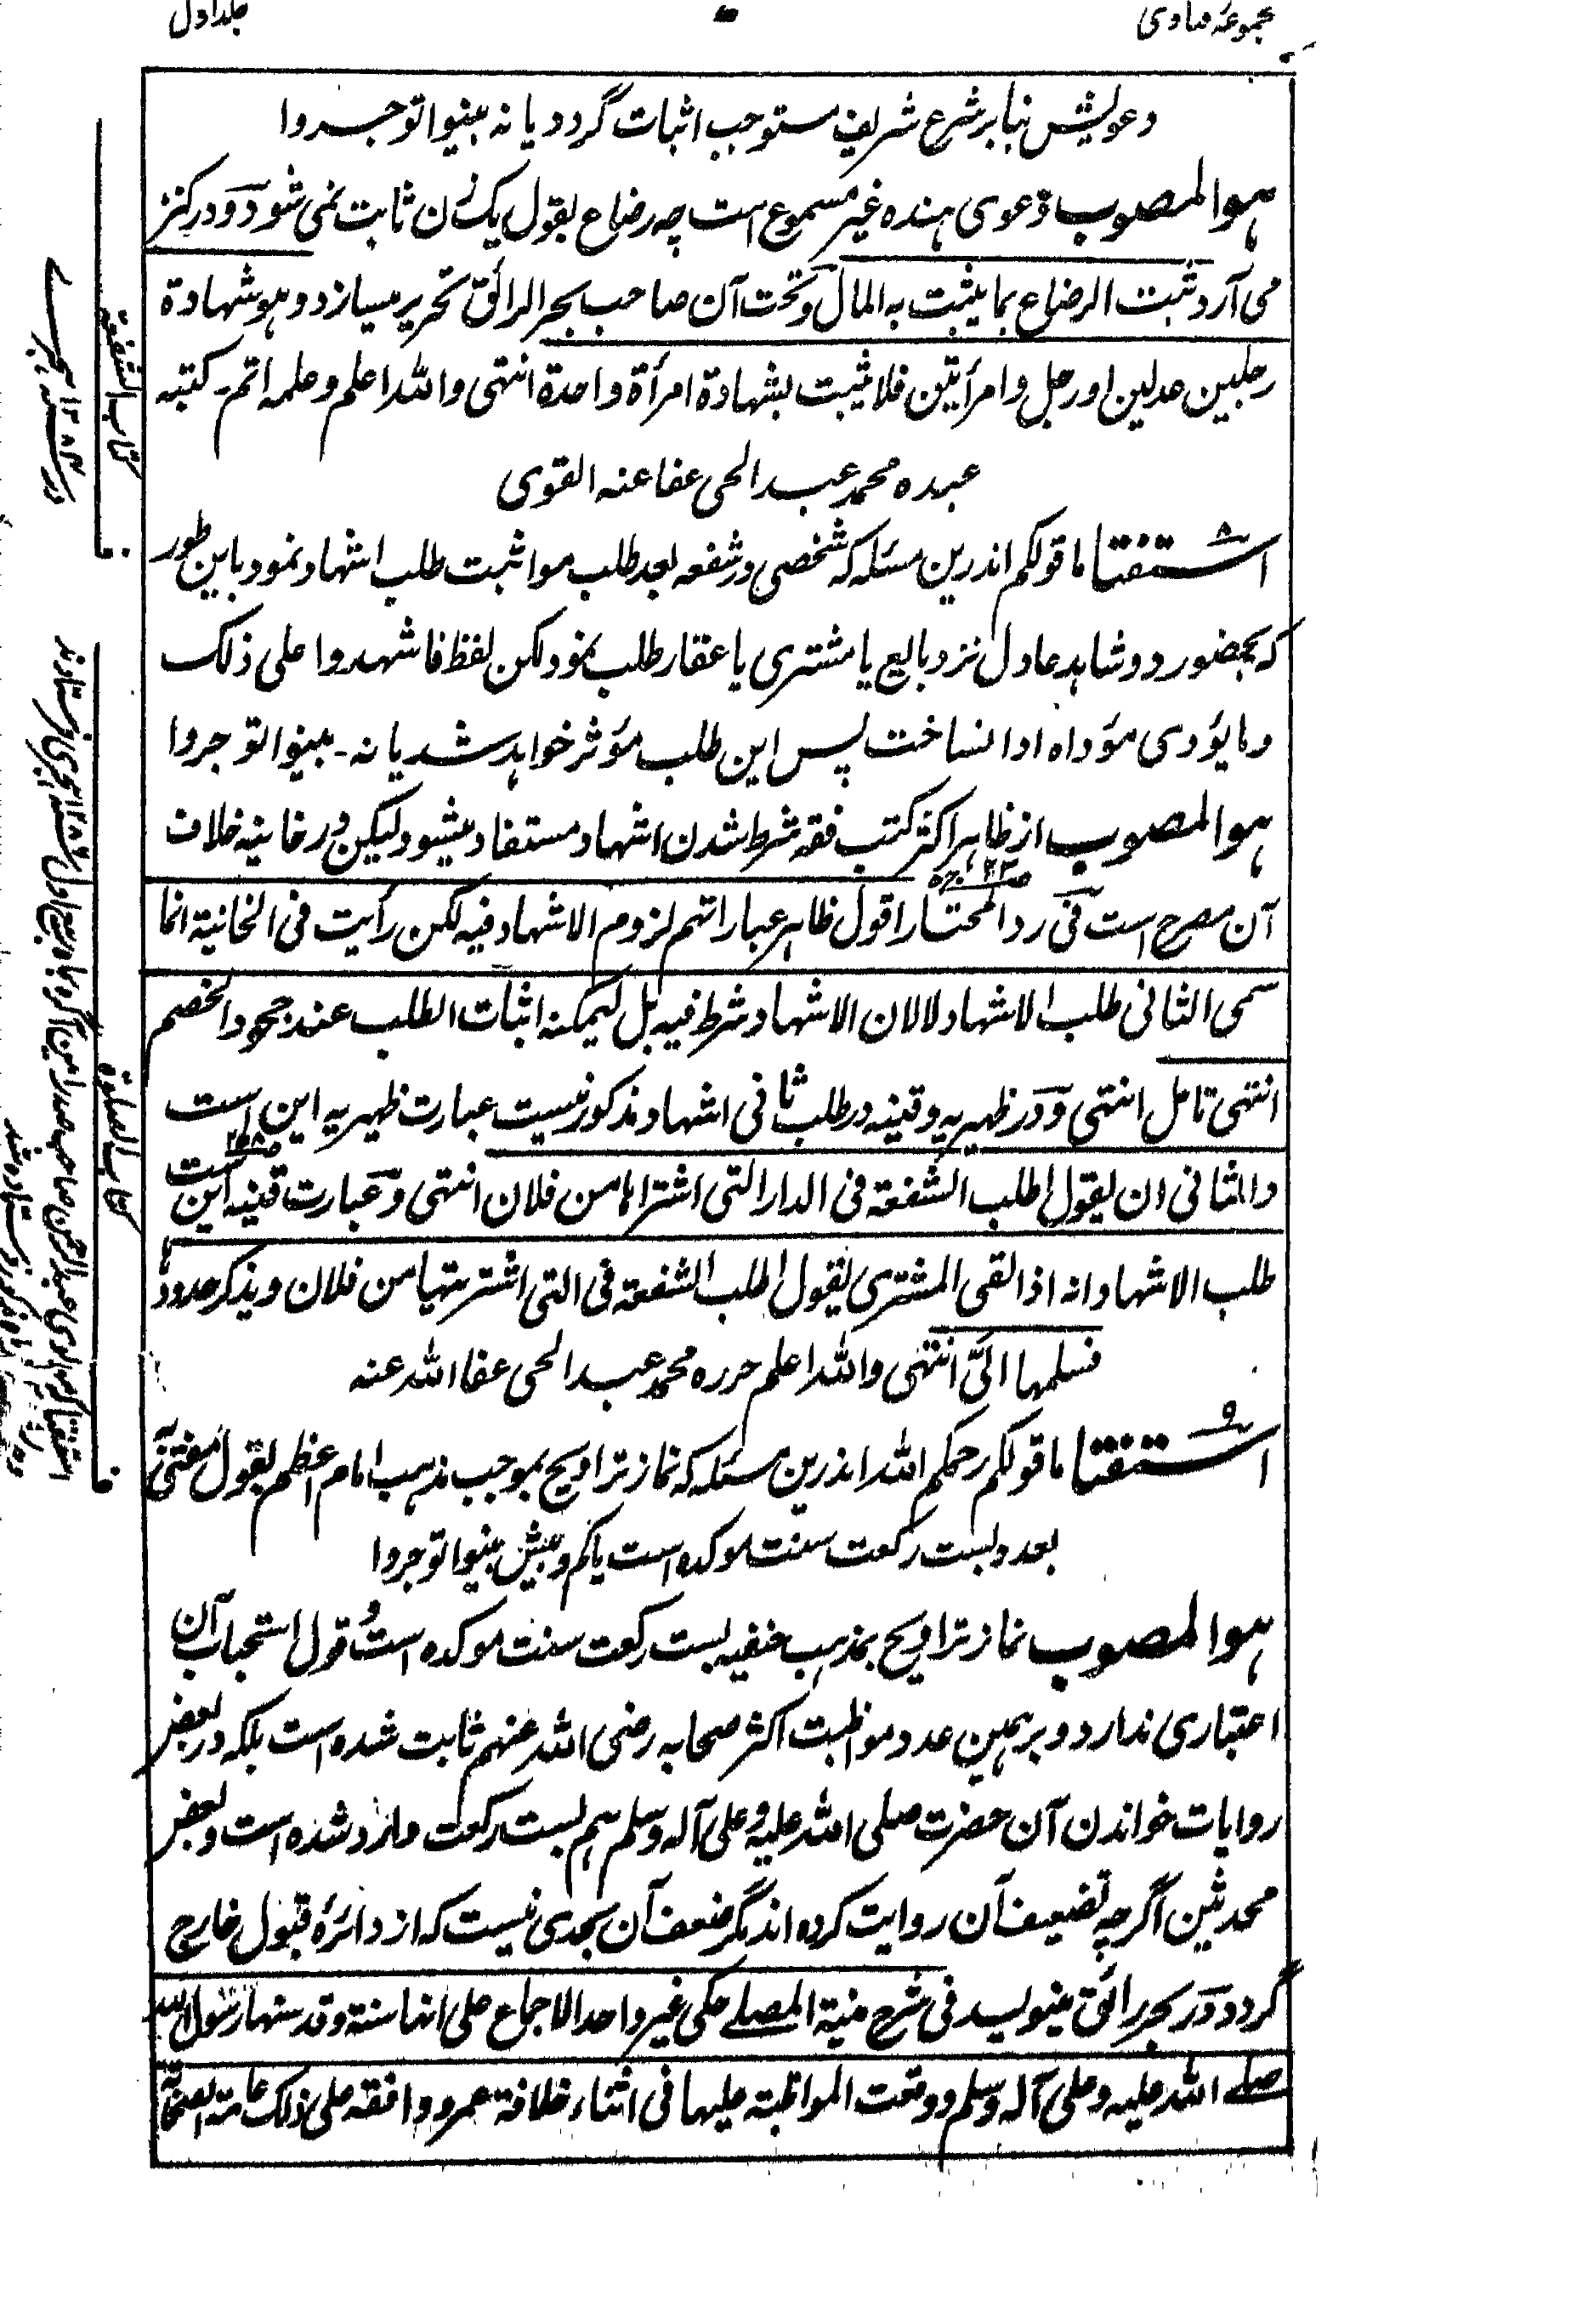 مجموعهٔ فتاوی
جلد اول
دعویش بنا بر شرع شریف مستوجب اثبات گردد یا نه بینوا توجروا
هو المصوب دعوی هنده غیر مسموع است چه رضاع بقول یک زن ثابت نمی شود و در کنز
می آرد ثبت الرضاع بما یثبت به المال و تحت آن صاحب بحر الرائق تحریر میسازد و هو شهادة
رجلین عدلین او رجل و امرأتین فلا یثبت بشهادة امرأة واحدة انتهی والله اعلم و علمه اتم ـ کتبه
عبده محمد عبد الحی عفا عنه القوی
۸
استفتا ما قولکم اندرین مسئله که شخصی در شفعه بعد طلب مواثبت طلب اشهاد نمود باین طور
که بحضور دو شاهد عادل نزد بایع یا مشتری یا عقار طلب نمود لکن لفظ فاشهدوا علی ذلک
و ما یؤدی مؤداه ادا نساخت پس این طلب مؤثر خواهد شد یا نه ـ بینوا توجروا
هو المصوب از ظاهر اکثر کتب فقه شرط شدن اشهاد مستفاد میشود لیکن در خانیه خلاف
آن مصرح است فی رد المحتار اقول ظاهر عباراتهم لزوم الاشهاد فیه لکن رأیت فی الخانیة انما
سمی الثانی طلب الاشهاد لا لان الاشهاد شرط فیه بل لیمکنه اثبات الطلب عند جحود الخصم
انتهی تامل انتهی و در ظهیریه و قینه در طلب ثانی اشهاد مذکور نیست عبارت ظهیریه این است
والثانی ان یقول اطلب الشفعة فی الدار التی اشتراها من فلان انتهی و عبارت قینه این است
طلب الاشهاد انه اذا لقی المشتری یقول اطلب الشفعة فی التی اشتریتها من فلان و یذکر حدودها
فسلمها الیّ انتهی والله اعلم حرره محمد عبد الحی عفا الله عنه
۹
استفتا ما قولکم رحمکم الله اندرین مسئله که نماز تراویح بموجب مذهب امام اعظم بقول مفتی به
بعدد بست رکعت سنت موکده است یا کم و بیش بینوا توجروا
هو المصوب نماز تراویح بمذهب حنفیه بست رکعت سنت موکده است و قول استحباب آن
اعتباری ندارد و بر همین عدد مواظبت اکثر صحابه رضی الله عنهم ثابت شده است بلکه در بعض
روایات خواندن آن حضرت صلی الله علیه و علی آله وسلم هم بست رکعت وارد شده است و بعض
محدثین اگرچه تضعیف آن روایت کرده اند مگر ضعف آن بحدی نیست که از دائرهٔ قبول خارج
گردد و در بحر رائق مینویسد فی شرح منیة المصلے حکی غیر واحد الاجماع علی انها سنة و قد سنها رسول الله
صلے الله علیه و علی آله وسلم و وقعت المواظبته علیها فی اثناء خلافة عمر و وافقه علی ذلک عامة الصحابة
کتاب الشفعة
کتاب الصلوة